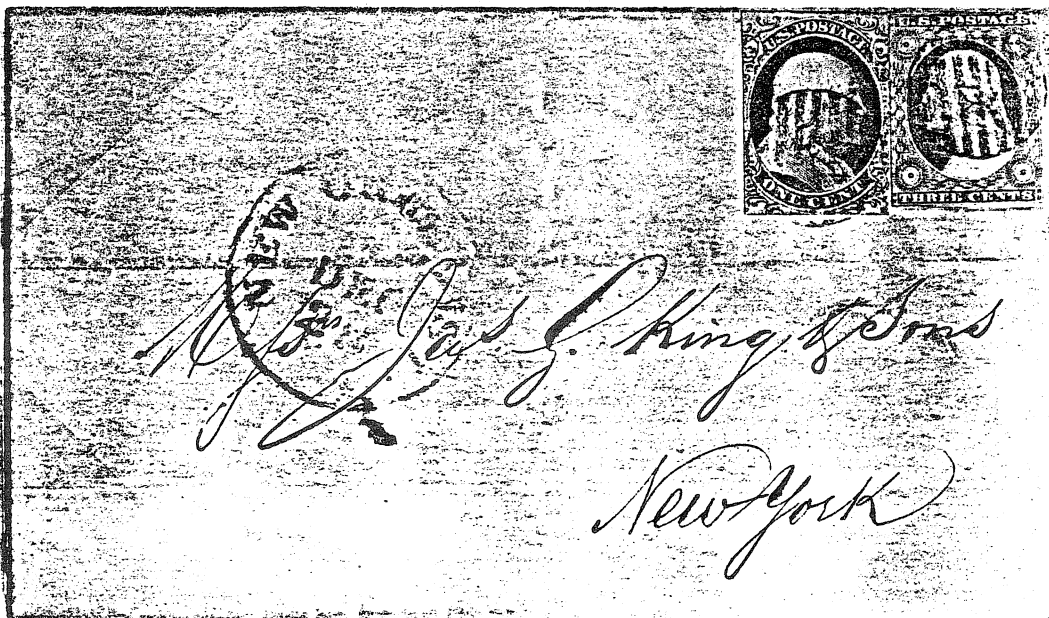 U.S. POSTAGE
ONE CENT
U.S. POSTAGE
THREE CENTS
NEW
DEC
Jas G. King & Sons
New York